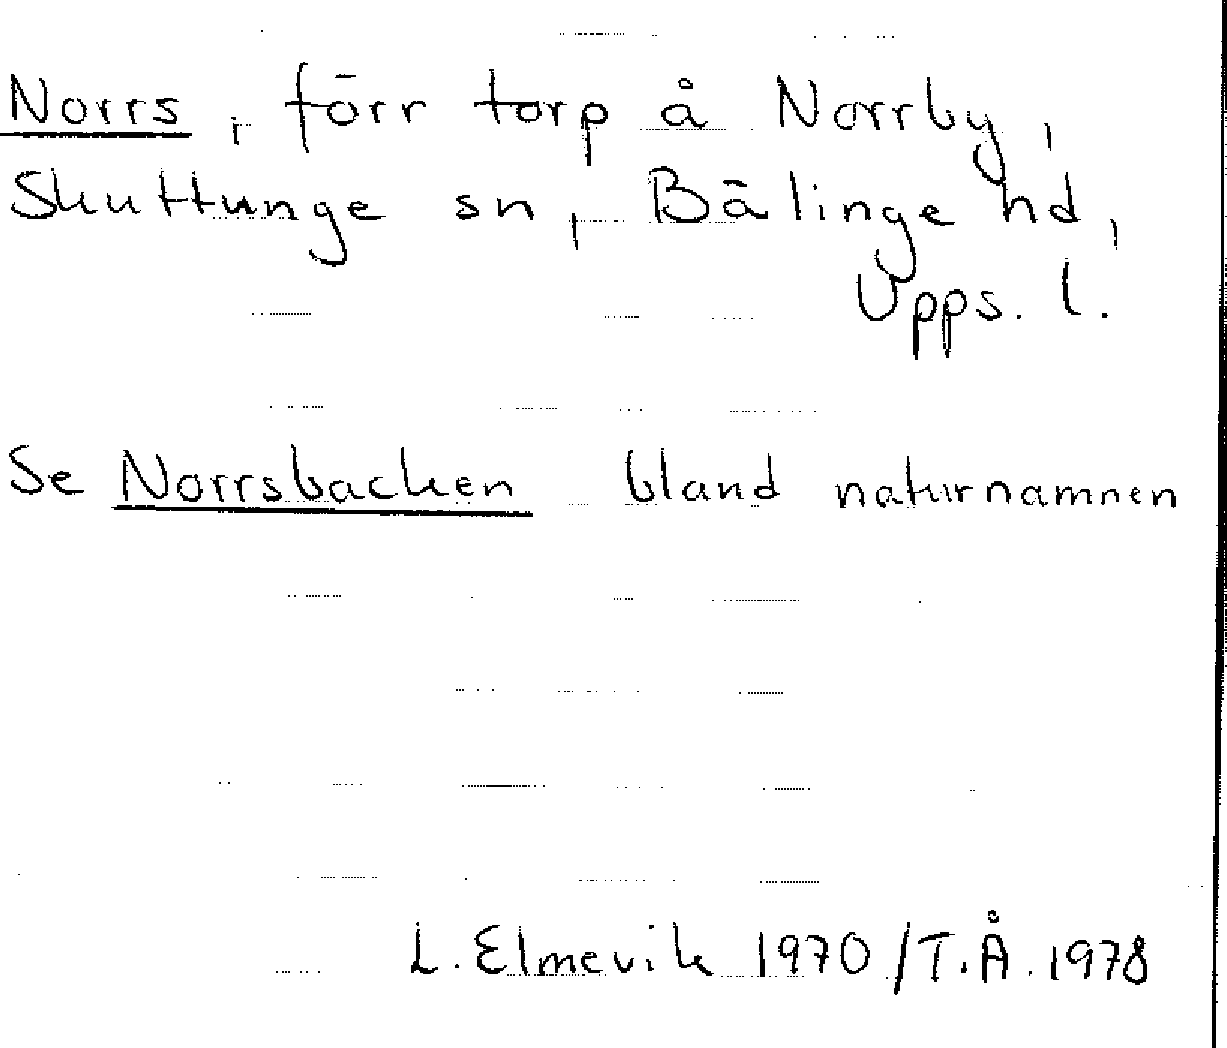 Norrs, förr torp å Norrby,
Skuttunge sn, Bälinge hd,
Upps. l.
Se Norrsbacken bland naturnamnen
L. Elmevik 1970/T.Å. 1978